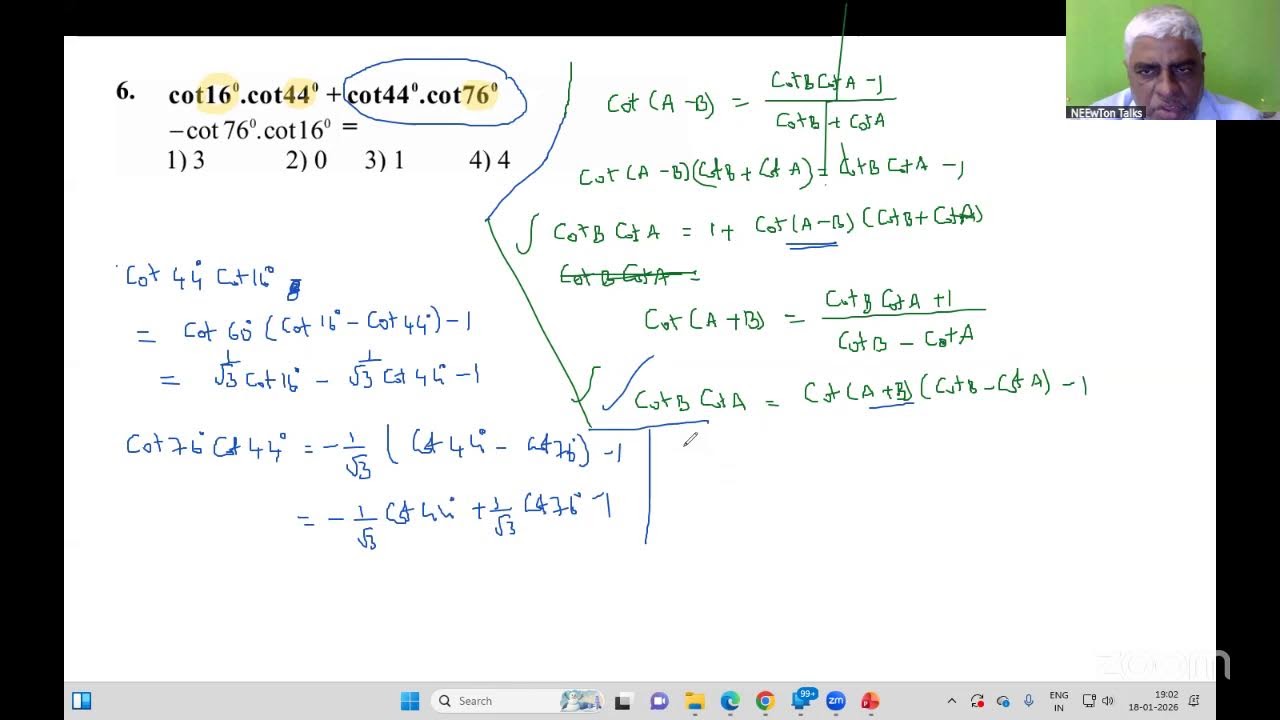 6. cot16⁰.cot44⁰ + cot44⁰.cot76⁰
−cot 76⁰.cot16⁰ =
1) 3 2) 0 3) 1 4) 4
Cot (A −B) = CotB CotA −1 / CotB + CotA
Cot (A −B)(CotB + Cot A) = CotB CotA −1
CotB CotA = 1+ Cot(A−B) (CotB+CotA)
Cot B CotA =
Cot (A +B) = CotB CotA +1 / CotB − CotA
CotB CotA = Cot(A+B) (CotB−CotA) −1
Cot 44° Cot16°
= Cot 60° (Cot 16° − Cot 44°) −1
= 1/√3 Cot16° − 1/√3 Cot 44° −1
Cot76° Cot44° = −1/√3 (Cot 44° − Cot76°) −1
= −1/√3 Cot44° + 1/√3 Cot76° −1
NEEwTon Talks
zoom
Search
99+
zm
ENG
IN
19:02
18-01-2026